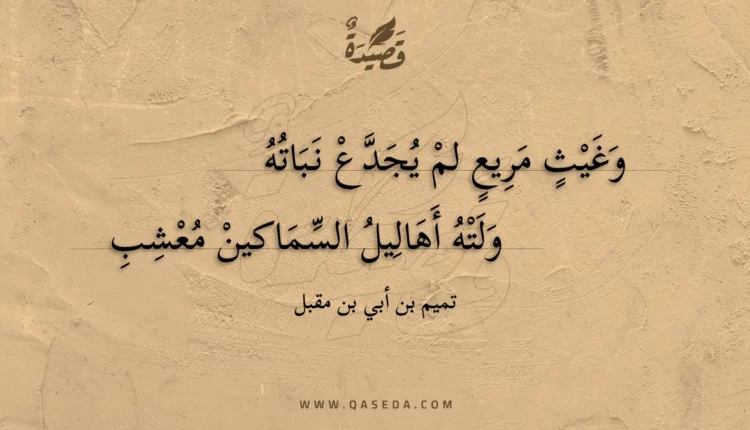 قَصِيدَةٌ
وَغَيْثٍ مَرِيعٍ لمْ يُجَدَّعْ نَبَاتُهُ
وَلَتْهُ أَهَالِيلُ السِّمَاكينْ مُعْشِبِ
تميم بن أبي بن مقبل
WWW.QASEDA.COM